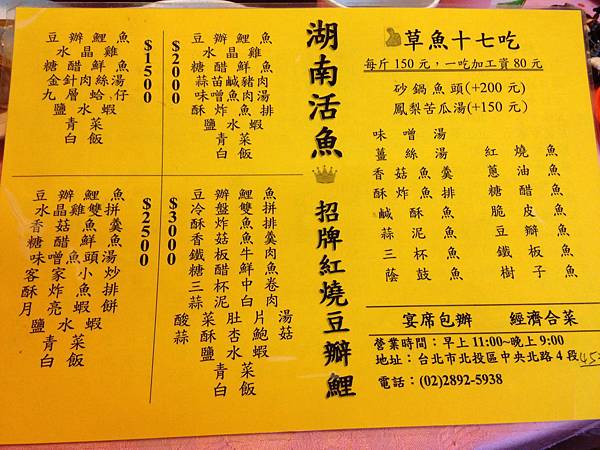 豆瓣鯉魚
水晶雞
糖醋鮮魚
金針肉絲湯
九層蛤仔
鹽水蝦
青菜
白飯
$1500
$2000
豆瓣鯉魚
水晶雞
糖醋鮮魚
蒜苗鹹豬肉
味噌魚肉湯
酥炸魚排
鹽水蝦
青菜
白飯
豆瓣鯉魚
水晶雞雙拼
香菇魚羹
糖醋鮮魚
味噌魚頭湯
客家小炒
酥炸魚排
月亮蝦餅
鹽水蝦
青菜
白飯
$2500
$3000
豆瓣鯉魚
冷盤雙拼
酥炸魚排
香菇魚羹
鐵板牛肉
糖醋鮮魚
三杯中卷
蒜泥白肉
酸菜肚片湯
蒜酥杏鮑菇
鹽水蝦
青菜
白飯
湖南活魚
招牌紅燒豆瓣鯉
草魚十七吃
每斤150元，一吃加工資80元
砂鍋魚頭(+200元)
鳳梨苦瓜湯(+150元)
味噌湯
薑絲湯 紅燒魚
香菇魚羹 蔥油魚
酥炸魚排 糖醋魚
鹹酥魚 脆皮魚
蒜泥魚 豆瓣魚
三杯魚 鐵板魚
蔭鼓魚 樹子魚
宴席包辦 經濟合菜
營業時間：早上11:00~晚上9:00
地址：台北市北投區中央北路4段
電話：(02)2892-5938